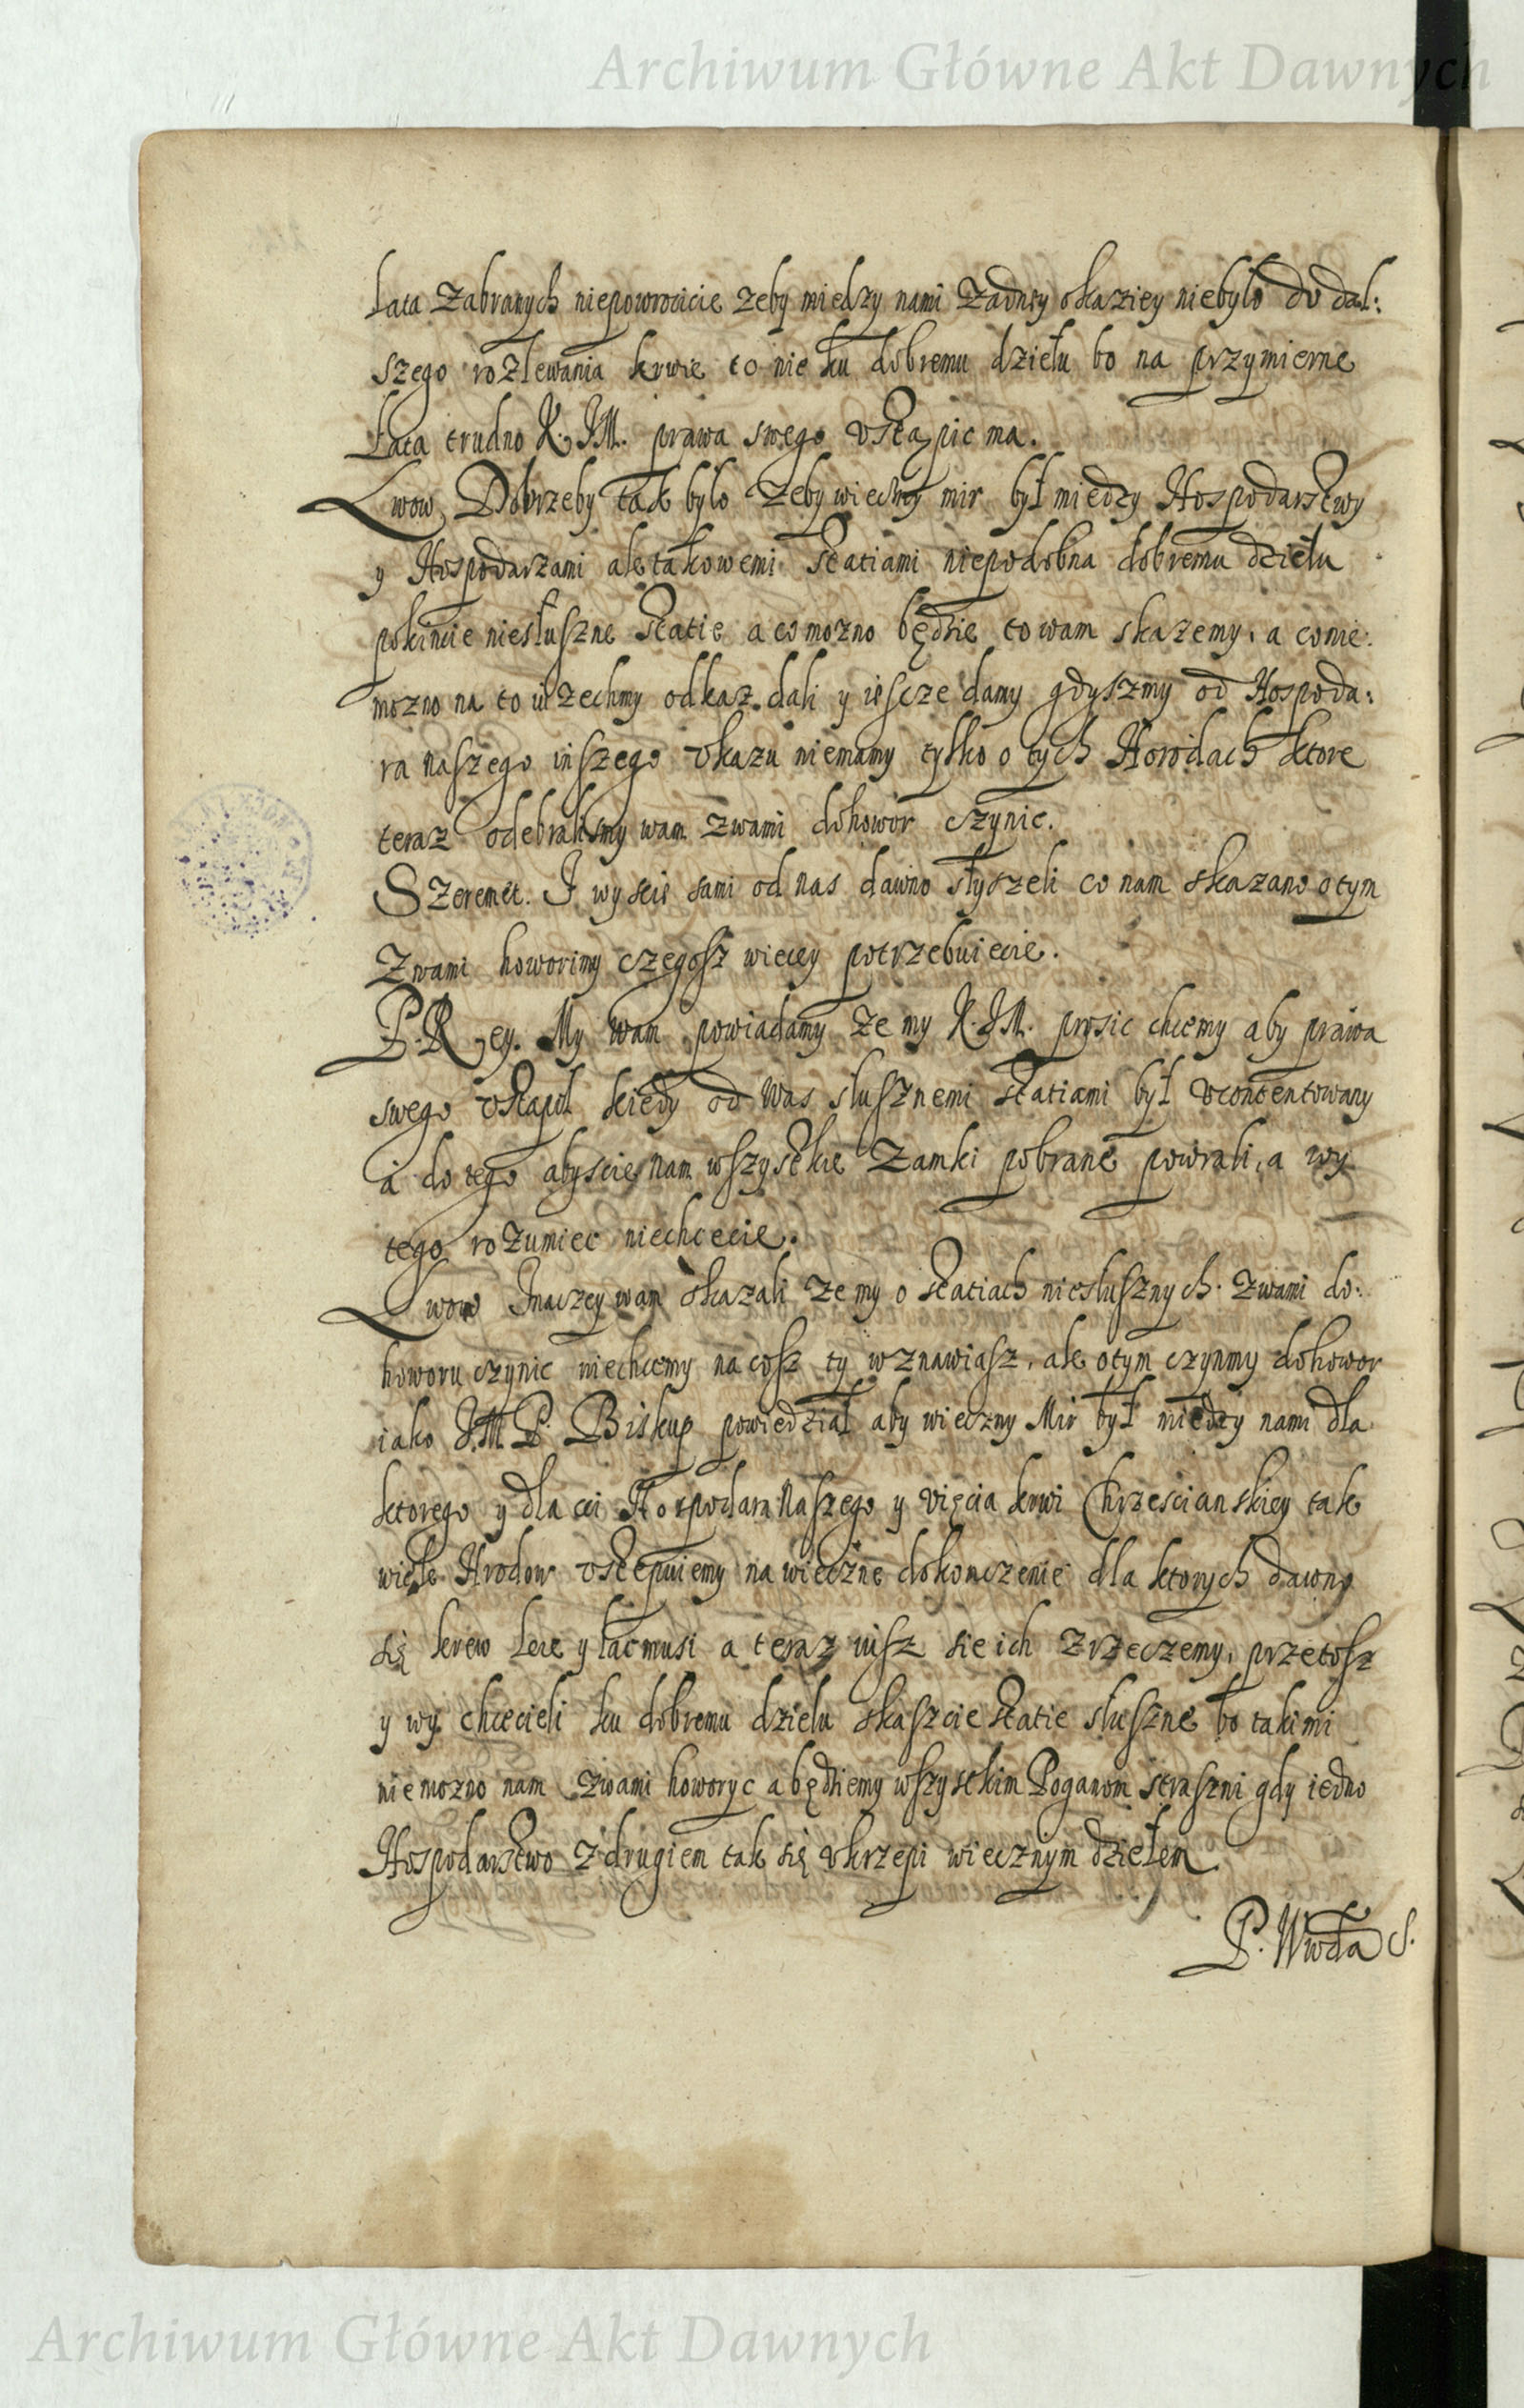 Archiwum Główne Akt Dawnych
Lata Zabranych niepowrocicie zeby miedzy nami Zadney okaziey niebyło do dal:
szego rozlewania krwie to nie ku dobremu dziełu bo na przymierne
Lata trudno K. JM. prawa swego vstąpic ma.
Lwow, Dobrzeby tak bylo Zeby wieczny mir był miedzy Hospodarstwy
y Hospodarzami ale takowemi statiami niepodobna dobremu dziełu
pokincie niesłuszne statie a co mozno będzie to wam skazemy, a co nie:
mozno na to iuzechmy odkaz dali y iescze damy gdyszmy od Hospoda:
ra naszego inszego vkazu niemamy tylko o tych Horodach ktore
teraz odebralismy wam zwami dohowor czynic.
Szeremet. I wyscie sami od nas dawno słyszeli co nam skazano o tym
Zwami howorimy czegosz wiecey potrzebuiecie.
P. Rey. My wam powiadamy ze my K. JM. prosic chcemy aby prawa
swego vstąpił kiedy od was slusznemi statiami był vcontentowany
a do tego abyscie nam wszystkie Zamki pobrane powrali, a wy
tego rozumiec niechcecie.
Lwow Inaczey wam skazali ze my o statiach niesłusznych zwami do:
howoru czynic niechcemy na cosz ty wznawiasz, ale o tym czynmy dohowor
iako J.M. P. Biskup powiedział aby wieczny Mir był miedzy nami dla
ktorego y dla cci Hospodara naszego y vięcia krwi Chrzescianskiey tak
wiele Hrodow vstepuiemy na wieczne dokonczenie dla ktorych dawno
się krew Leie y lac musi a teraz iusz sie ich zrzeczemy, przetosz
y wy chcecieli ku dobremu dziełu skaszcie statie słuszne bo takimi
nie mozno nam zwami howoryc a będziemy wszystkim Poganom straszni gdy iedno
Hospodarstwo z drugiem tak się vkrzepi wiecznym dziełem
P. Wwda S.
Archiwum Główne Akt Dawnych